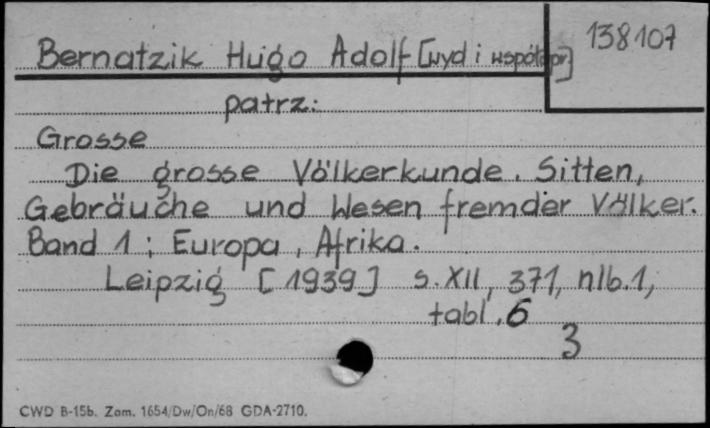 138107
Bernatzik Hugo Adolf [wyd i współopr.]
patrz:
Grosse
Die grosse Völkerkunde. Sitten,
Gebräuche und Wesen fremder Völker.
Band 1: Europa, Afrika.
Leipzig [1939] s. XII, 371, nlb.1,
tabl. 6
3
CWD B-15b. Zam. 1654/Dw/On/68 GDA-2710.